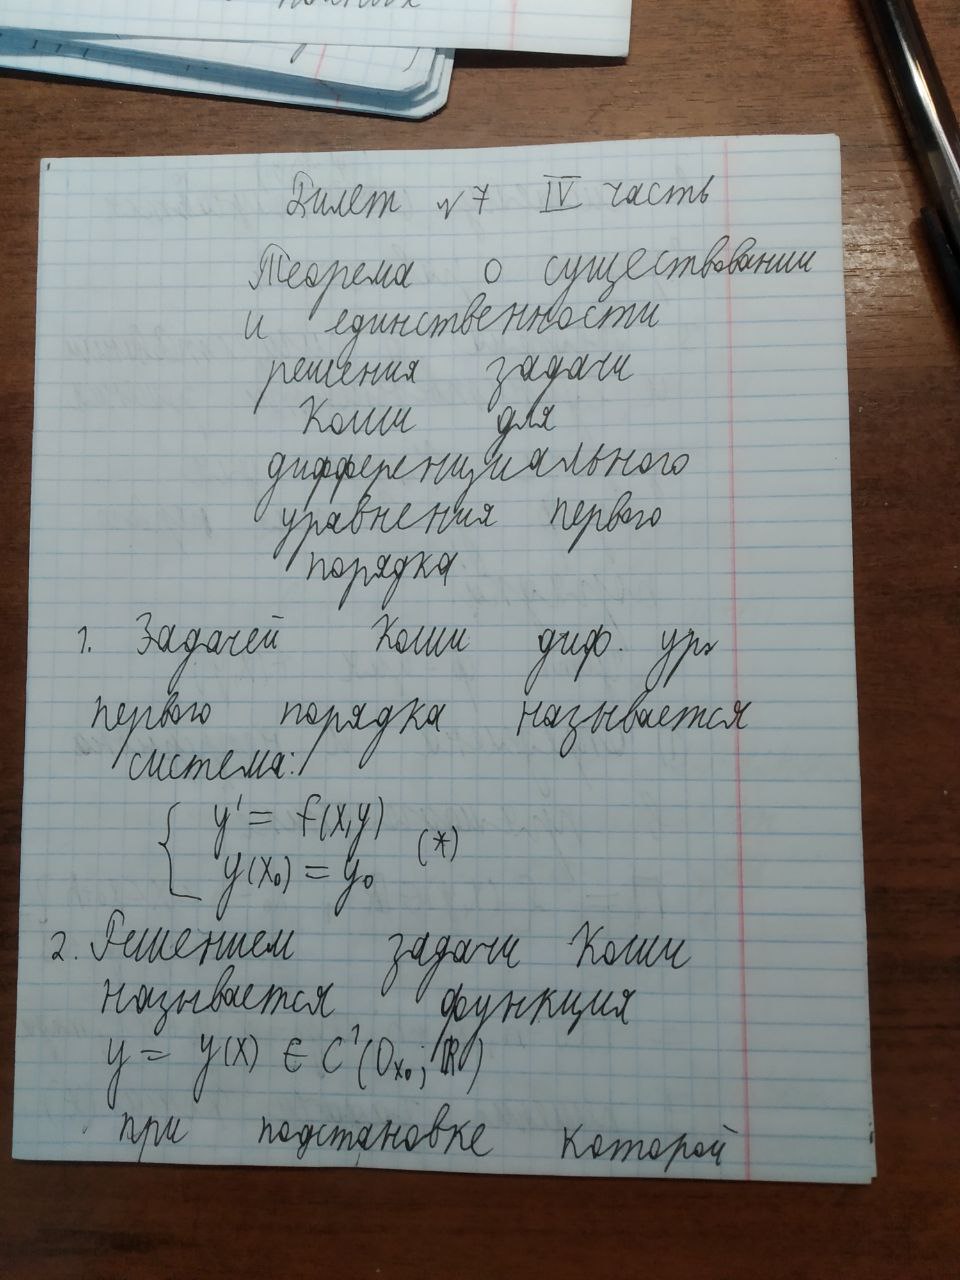 Билет №7 IV часть
Теорема о существовании
и единственности
решения задачи
Коши для
дифференциального
уравнения первого
порядка
1. Задачей Коши диф. ур.
первого порядка называется
система:
y' = f(x,y)
(*)
y(x₀) = y₀
2. Решением задачи Коши
называется функция
y = y(x) ∈ C¹(O_{x₀}; ℝ)
при подстановке которой